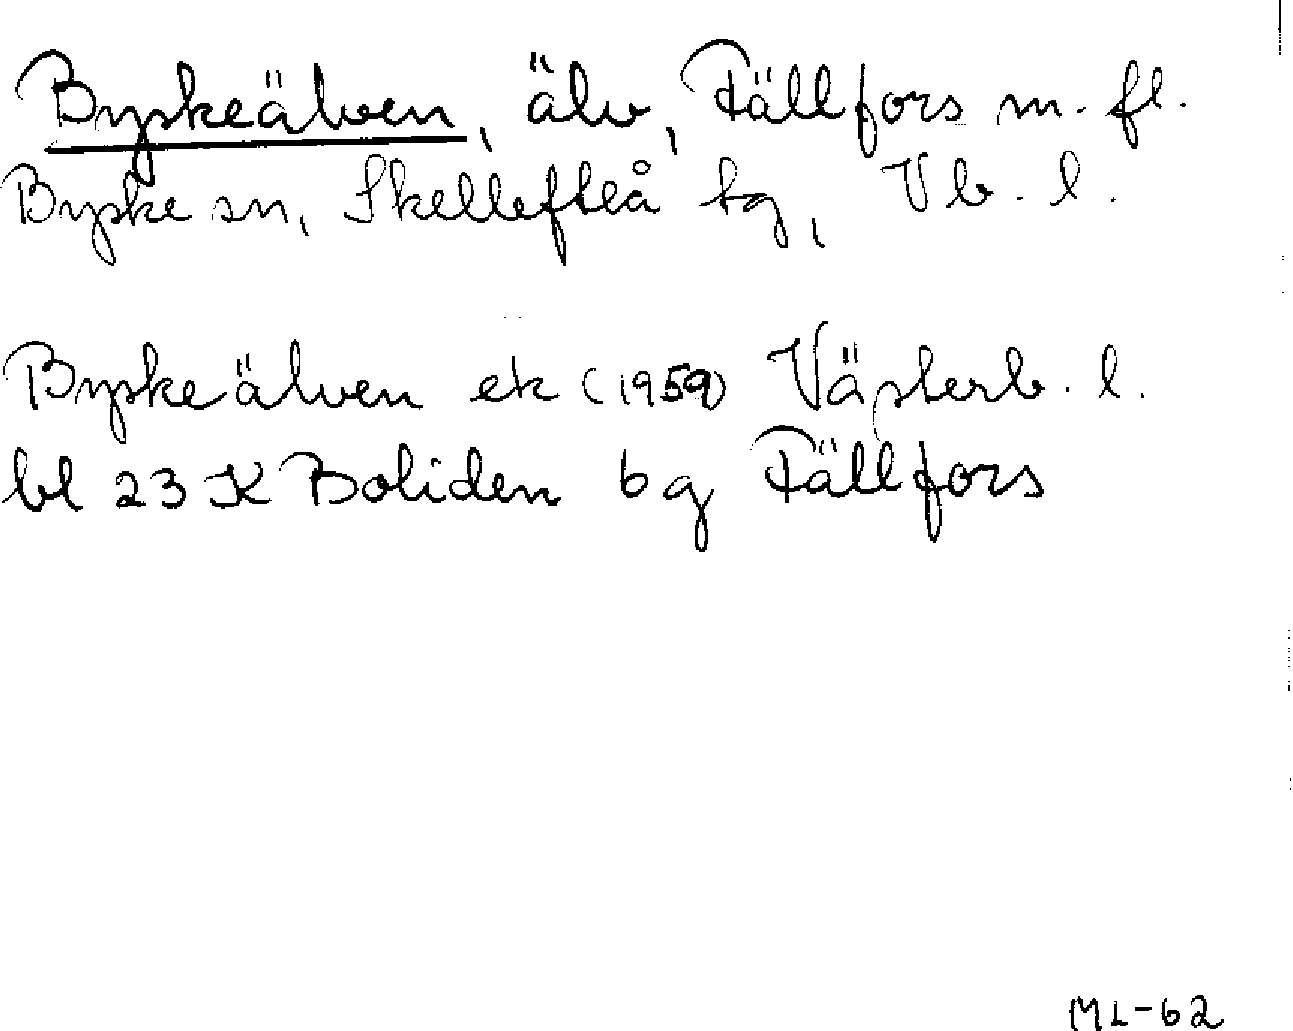 Byskeälven, älv, Fällfors m. fl.
Byske sn, Skellefteå tg, Vb. l.
Byskeälven ek (1959) Västerb. l.
bl 23 K Boliden bg Fällfors
ML-62